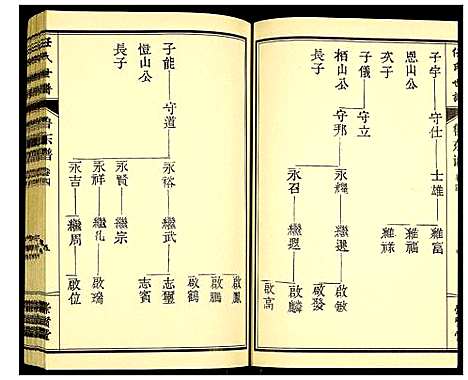 子宇 守仕 士雄 維富
維福
維祿
恩山公
次子
子儀 守立
栢山公 守邦 永耀 繼選 啟敏
啟發
長子
永召 繼選 啟麟
啟高
子能 守道 永裕 繼武 啟鳳
啟鵬
啟鶴
志璽
志賓
愷山公
長子
永賢 繼宗
永祥 繼孔 啟瑞
永吉 繼周 啟位
任氏世譜